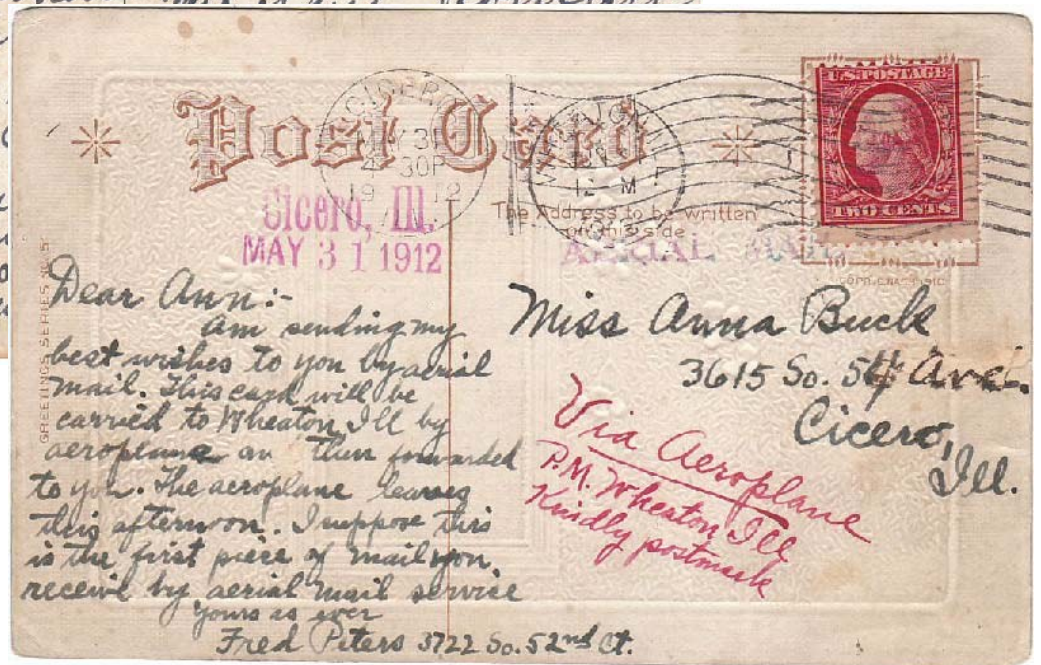 Post Card
CICERO
30P
19 12
ILL.
WHEATON ILL
12-M
U.S. POSTAGE
TWO CENTS
Cicero, Ill.
MAY 31 1912
The Address to be written
on this side
AERIAL MAIL
GREETINGS SERIES NO.
Dear Ann:-
Am sending my
best wishes to you by aerial
mail. This card will be
carried to Wheaton Ill by
aeroplane an then forwarded
to you. The aeroplane leaves
this afternoon. I suppose this
is the first piece of mail you
receive by aerial mail service
yours as ever
Fred Peters 3722 So. 52nd Ct.
Miss Anna Buck
3615 So. 54 Ave.
Cicero,
Ill.
Via Aeroplane
P.M. Wheaton Ill
Kindly postmark